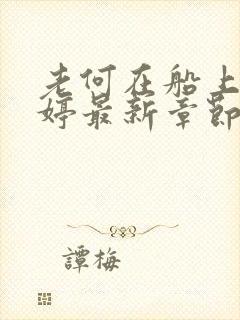 老何在船上
婷最新章节
譚梅